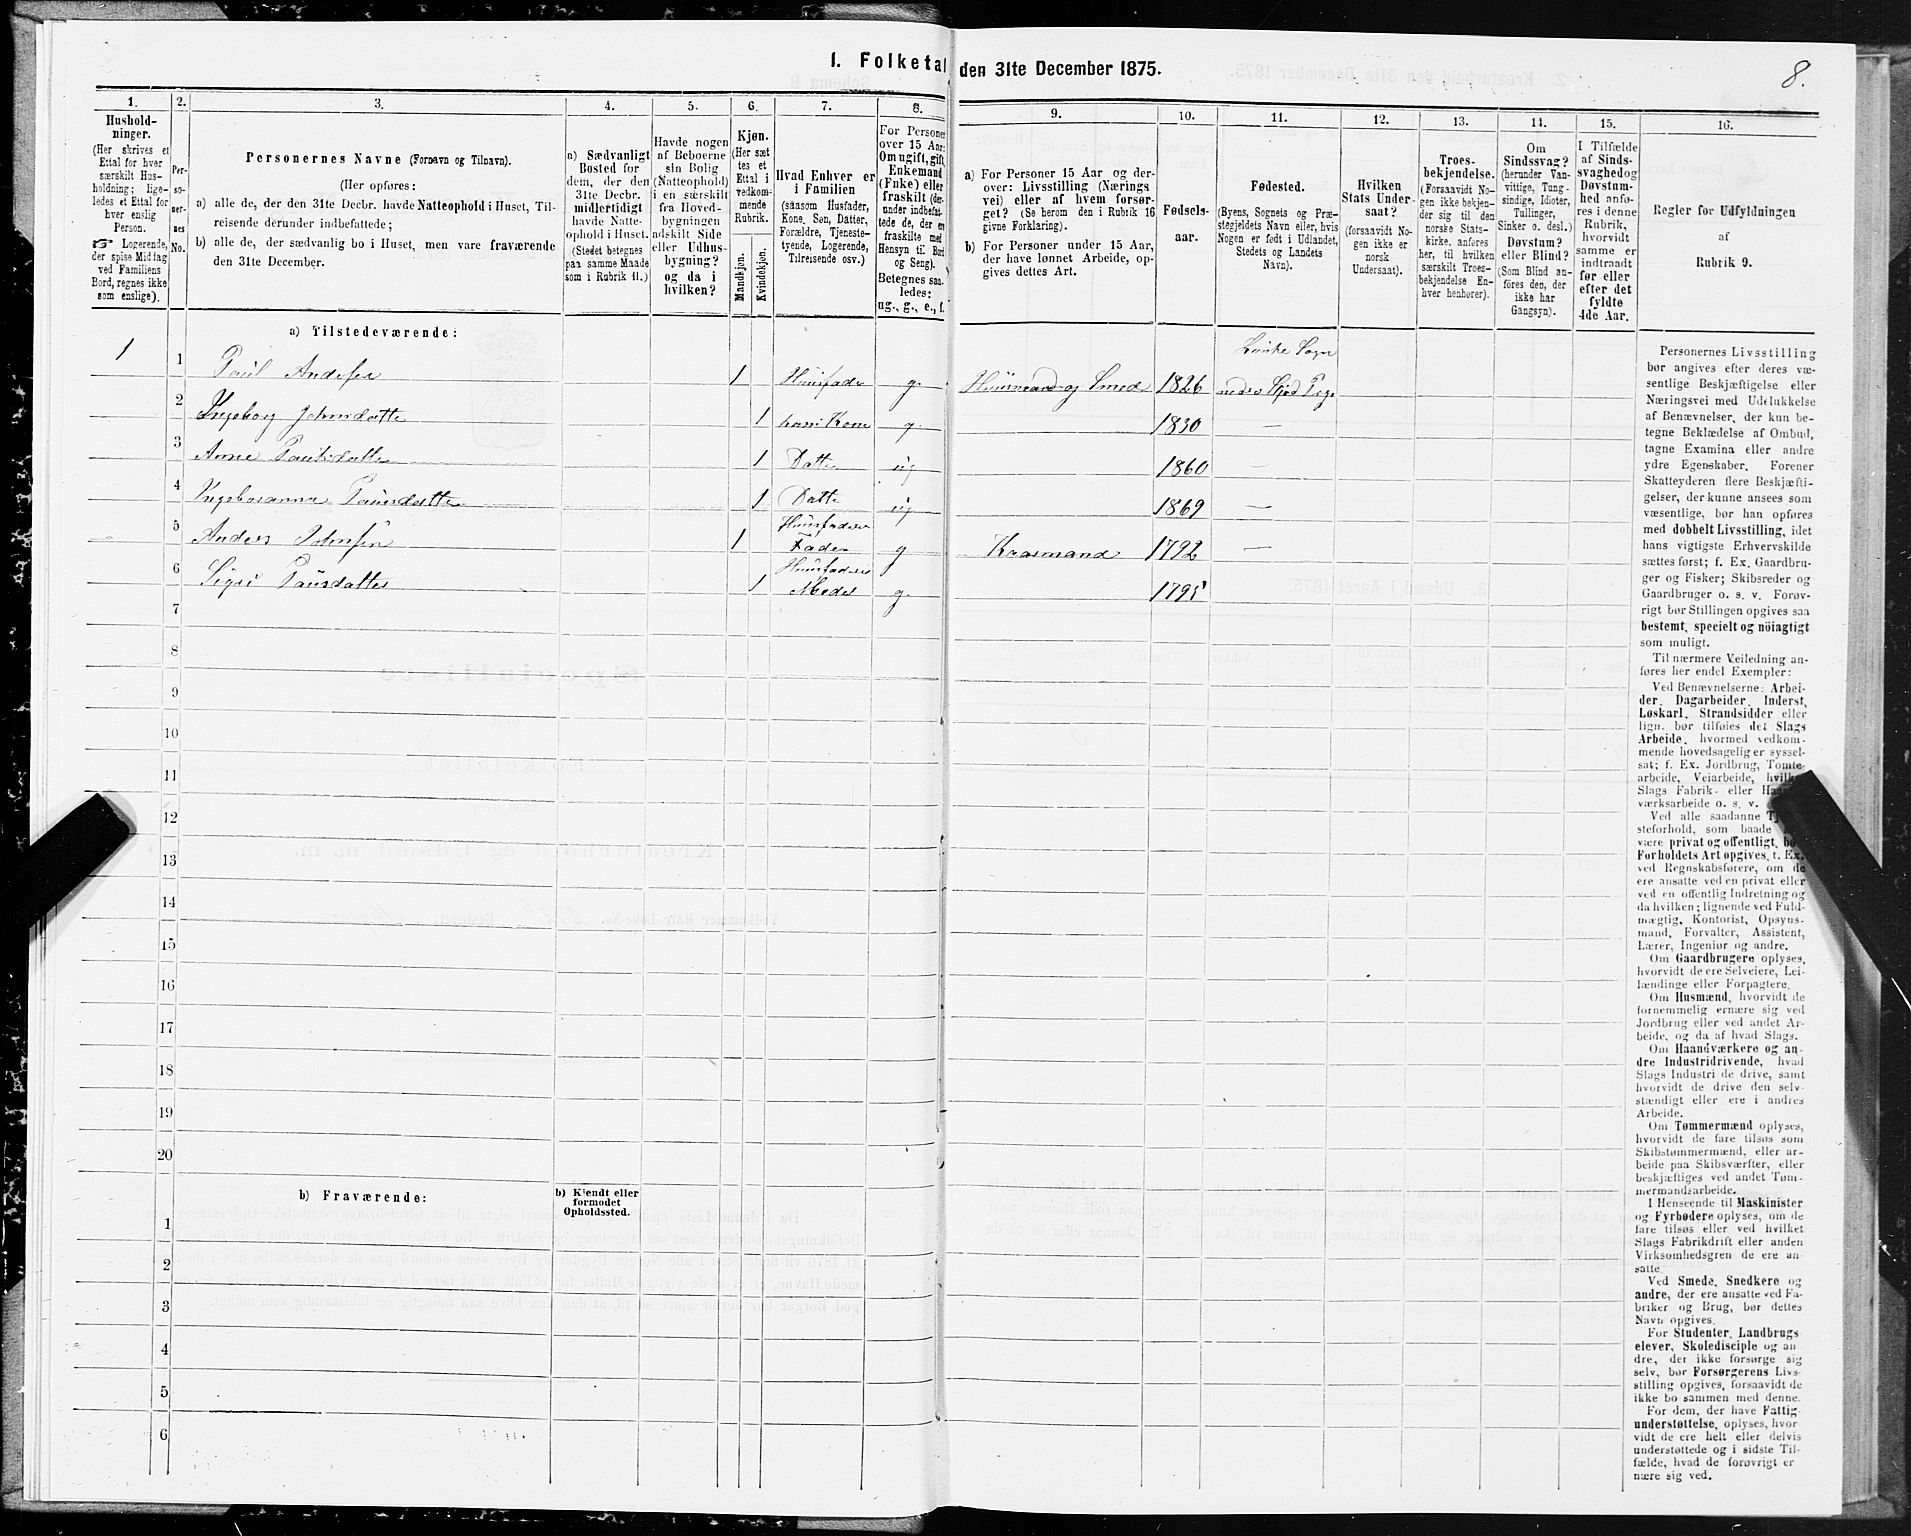 1. Folketal den 31te December 1875.
8.
1.
Hushold-
ninger.
(Her skrives et
Ettal for hver
særskilt Hus-
holdning; lige-
ledes et Ettal for
hver enslig
Person.
☞ Logerende,
der spise Middag
ved Familiens
Bord, regnes ikke
som enslige).
2.
Per-
so-
ner-
nes
No.
3.
Personernes Navne (Fornavn og Tilnavn).
(Her opføres:
a) alle de, der den 31te Decbr. havde Natteophold i Huset, Til-
reisende derunder indbefattede;
b) alle de, der sædvanlig bo i Huset, men vare fraværende
den 31te December.
4.
a) Sædvanligt
Bosted for
dem, der den
31te Decbr.
midlertidigt
havde Natte-
ophold i Huset.
(Stedet betegnes
paa samme Maade
som i Rubrik 11.)
5.
Havde nogen
af Beboerne
sin Bolig
(Natteophold)
i en særskilt
fra Hoved-
bygningen
adskilt Side
eller Udhus-
bygning?
og da i
hvilken?
6.
Kjøn.
(Her sæt
tes et
Ettal i
vedkom-
mende
Rubrik.
Mandkjøn.
Kvindekjøn.
7.
Hvad Enhver er
i Familien
(saasom Husfader,
Kone, Søn, Datter,
Forældre, Tjeneste-
tyende, Logerende,
Tilreisende osv.)
8.
For Personer
over 15 Aar:
Om ugift, gift,
Enkemand
(Enke) eller
fraskilt (der-
under indbefat-
tede de, der ere
fraskilte med
Hensyn til Bord
og Seng).
Betegnes saa-
ledes:
ug., g., e., f.
9.
a) For Personer 15 Aar og der-
over: Livsstilling (Nærings
vei) eller af hvem forsør-
get? (Se herom den i Rubrik 16
givne Forklaring).
b) For Personer under 15 Aar,
der have lønnet Arbeide, op-
gives dettes Art.
10.
Fødsels-
aar.
11.
Fødested.
(Byens, Sognets og Præ-
stegjeldets Navn eller, hvis
Nogen er født i Udlandet,
Stedets og Landets
Navn).
12.
Hvilken
Stats Under-
saat?
(forsaavidt No-
gen ikke er
norsk
Undersaat).
13.
Troes-
bekjendelse.
(Forsaavidt No-
gen ikke bekjen-
der sig til den
norske Stats-
kirke, anføres
her, til hvilken
særskilt Troes-
bekjendelse En-
hver henhører).
14.
Om
Sindssvag?
(herunder Van-
vittige, Tung-
sindige, Idioter,
Tullinger,
Sinker o. desl.)
Døvstum?
eller Blind?
(Som Blind an-
føres den, der
ikke har
Gangsyn).
15.
I Tilfælde
af Sinds-
svaghed og
Døvstum-
hed anfø-
res i denne
Rubrik,
hvorvidt
samme er
indtraadt
før eller
efter det
fyldte
4de Aar.
16.
Regler for Udfyldningen
af
Rubrik 9.
a) Tilstedeværende:
1 1 Paul Andersen 1 Huusfader g. Huusmand og Smed 1826
2 Ingeborg Johnsdatter 1 hans Kone g. 1830 —
3 Anne Paulsdatter 1 Datter ug 1860 —
4 Ingeboranna Paulsdatter 1 Datter ug 1869 —
5 Anders Johnsen 1 Huusfaders Fader g Kaarmand 1792 —
6 Sigri Paulsdatter 1 Huusfaders Moder g. 1795
7
8
9
10
11
12
13
14
15
16
17
18
19
20
b) Fraværende:
b) Kjendt eller
formodet
Opholdssted.
1
2
3
4
5
6
Personernes Livsstilling
bør angives efter deres væ-
sentlige Beskjæftigelse eller
Næringsvei med Udelukkelse
af Benævnelser, der kun be-
tegne Beklædelse af Ombud,
tagne Examina eller andre
ydre Egenskaber. Forener
Skatteyderen flere Beskjæfti-
gelser, der kunne ansees som
væsentlige, bør han opføres
med dobbelt Livsstilling, idet
hans vigtigste Erhvervskilde
sættes først; f. Ex. Gaardbru-
ger og Fisker; Skibsreder og
Gaardbruger o. s. v. Forøv-
rigt bør Stillingen opgives saa
bestemt, specielt og nöiagtigt
som muligt.
Til nærmere Veiledning an-
føres her endel Exempler:
Ved Benævnelserne: Arbei-
der, Dagarbeider, Inderst,
Løskarl, Strandsidder eller
lign. bør tilføies det Slags
Arbeide, hvormed vedkom-
mende hovedsagelig er syssel-
sat; f. Ex. Jordbrug, Tomte-
arbeide, Veiarbeide, hvilket
Slags Fabrik- eller Haand-
værksarbeide o. s. v.
Ved alle saadanne Tje-
steforhold, som baade
være privat og offentligt, bør
Forholdets Art opgives, t. Ex.
ved Regnskabsførere, om de
ere ansatte ved en privat eller
ved en offentlig Indretning og
da hvilken; lignende ved Fuld-
mægtig, Kontorist, Opsyns-
mand, Forvalter, Assistent,
Lærer, Ingeniør og andre.
Om Gaardbrugere oplyses,
hvorvidt de ere Selveiere, Lei-
lændinge eller Forpagtere.
Om Husmænd, hvorvidt de
fornemmelig ernære sig ved
Jordbrug eller ved andet Ar-
beide, og da af hvad Slags.
Om Haandværkere og an-
dre Industridrivende, hvad
Slags Industri de drive, samt
hvorvidt de drive den selv-
stændigt eller ere i andres
Arbeide.
Om Tømmermænd oplyses,
hvorvidt de fare tilsøs som
Skibstømmermænd, eller ar-
beide paa Skibsværfter, eller
beskjæftiges ved andet Tøm-
mermandsarbeide.
I Henseende til Maskinister
og Fyrbødere oplyses, om de
fare tilsøs eller ved hvilket
Slags Fabrikdrift eller anden
Virksomhedsgren de ere an-
satte.
Ved Smede, Snedkere og
andre, der ere ansatte ved Fa-
briker og Brug, bør dettes
Navn opgives.
For Studenter, Landbrugs-
elever, Skoledisciple og an-
dre, der ikke forsørge sig
selv, bør Forsørgerens Livs-
stilling opgives, forsaavidt de
ikke bo sammen med denne.
For dem, der have Fattig-
understøttelse, oplyses, hvor-
vidt de ere helt eller delvis
understøttede og i sidste Til-
fælde, hvad de forøvrigt er
nære sig ved.